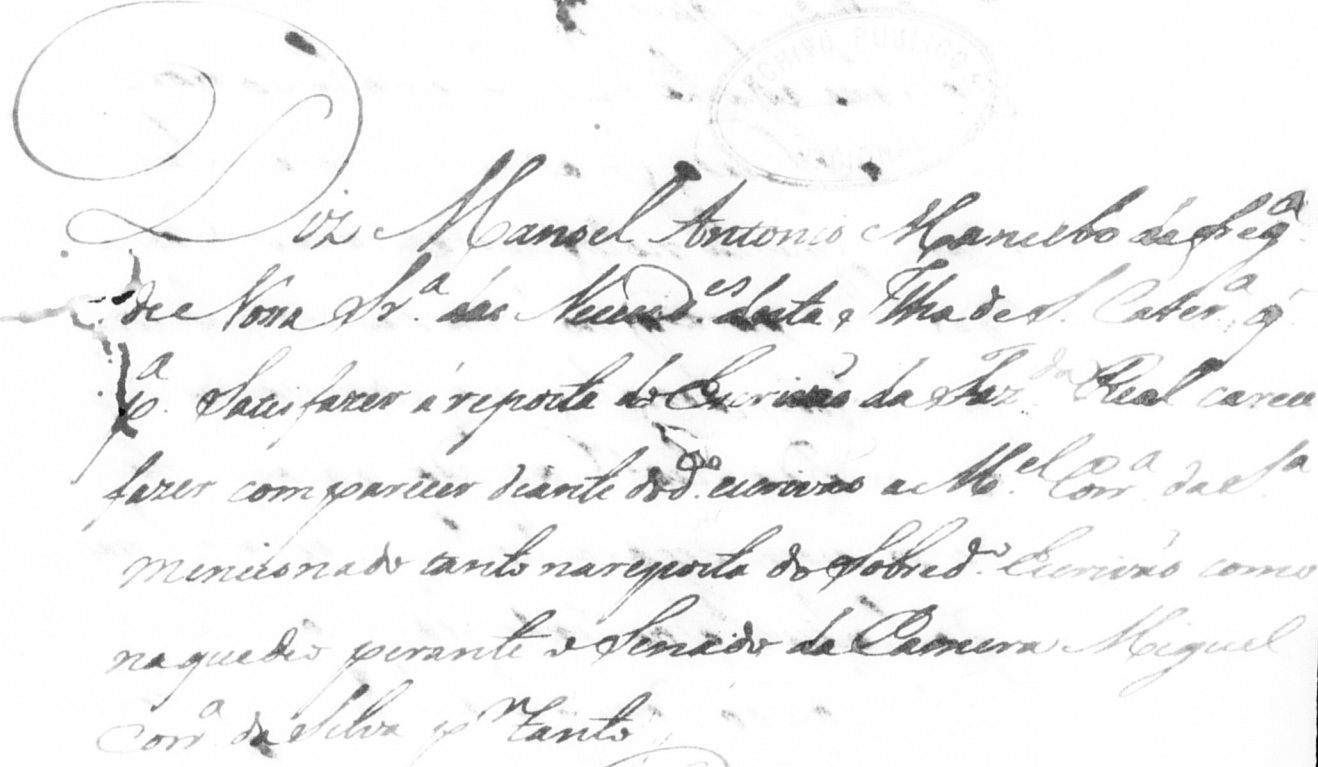 ARCHIVO PUBLICO
NACIONAL
Diz Manoel Antonio Mancebo da Freg.ª
de Nossa Sr.ª das Necesd.es desta Ilha de S. Cater.ª q'
p.ª Satisfazer a reposta do Escrivão da Faz.da Real carece
fazer comparecer diante do d.º escrivão a M.el Corr.ª da S.ª
mencionado tanto na reposta do Sobred.º Escrivão como
na que deo perante o Senado da Camera Miguel
Corr.ª da Silva p.r tanto